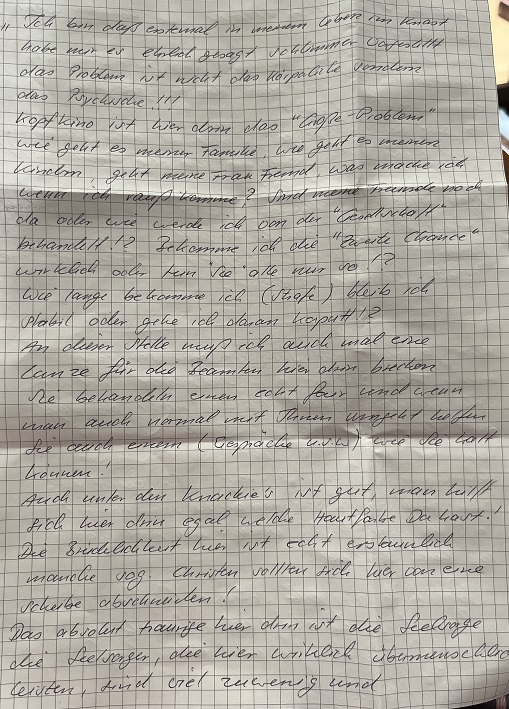 " Ich bin daß erstmal in meinem Leben im Knast
habe mir es ehrlich gesagt schlimmer vorgestellt
das Problem ist nicht das Körperliche sondern
das Psychische!!!
Kopfkino ist hier drin das "Große-Problem"
wie geht es meiner Familie, wie geht es meinen
Kindern, geht meine Frau fremd, was mache ich
wenn ich rauß komme? Sind meine Freunde noch
da oder wie werde ich von der "Gesellschaft"
behandelt!? Bekomme ich die "Zweite Chance"
wirklich oder tun Sie alle nur so!?
Wie lange bekomme ich (Strafe) bleib ich
stabil oder gehe ich daran kaputt!?
An dieser Stelle muß ich auch mal eine
Lanze für die Beamten hier drin brechen
Sie behandeln einen echt fair und wenn
man auch normal mit Ihnen umgeht helfen
Sie auch einem (Gespräche u.s.w) wie Sie halt
können!
Auch unter den Knackie's ist gut, man hilft
sich hier drin egal welche Hautfarbe Du hast!
Die Brüderlichkeit hier ist echt erstaunlich
manche sog. Christen sollten sich hier von eine
Scheibe abschneiden!
Das absolut traurige hier drin ist die Seelsorge
die Seelsorger, die hier wirklich
leisten, sind viel zuwenig und